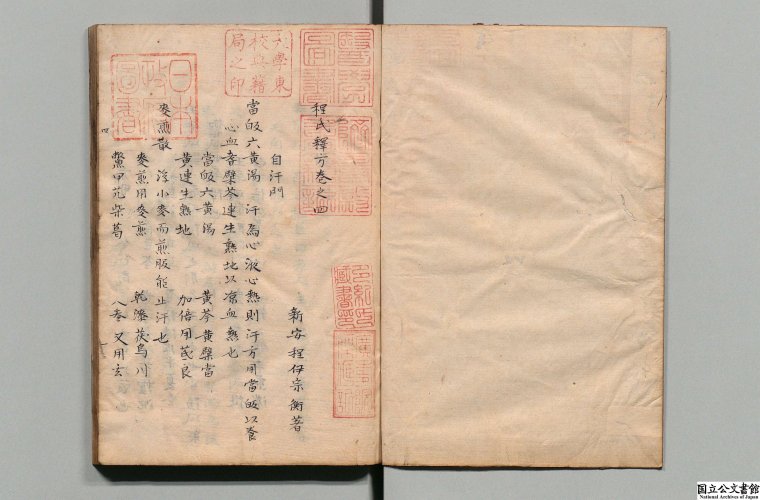 程氏釋方卷之四
新安程伊宗衡著
自汗門
當皈六黃湯　汗為心液心熱則汗方用當皈以養
心血耆櫱芩連生熟地以凉血熱也
當皈六黃湯　黃芩黃櫱當
黃連生熟地　加倍用芪良
麥煎散　浮小麥而煎服能止汗也
麥煎用麥煎　乾漆茯烏川
鱉甲芃柴葛　又用玄
大學東
校典籍
局之印
日本
政府
圖書
国立公文書館
National Archives of Japan